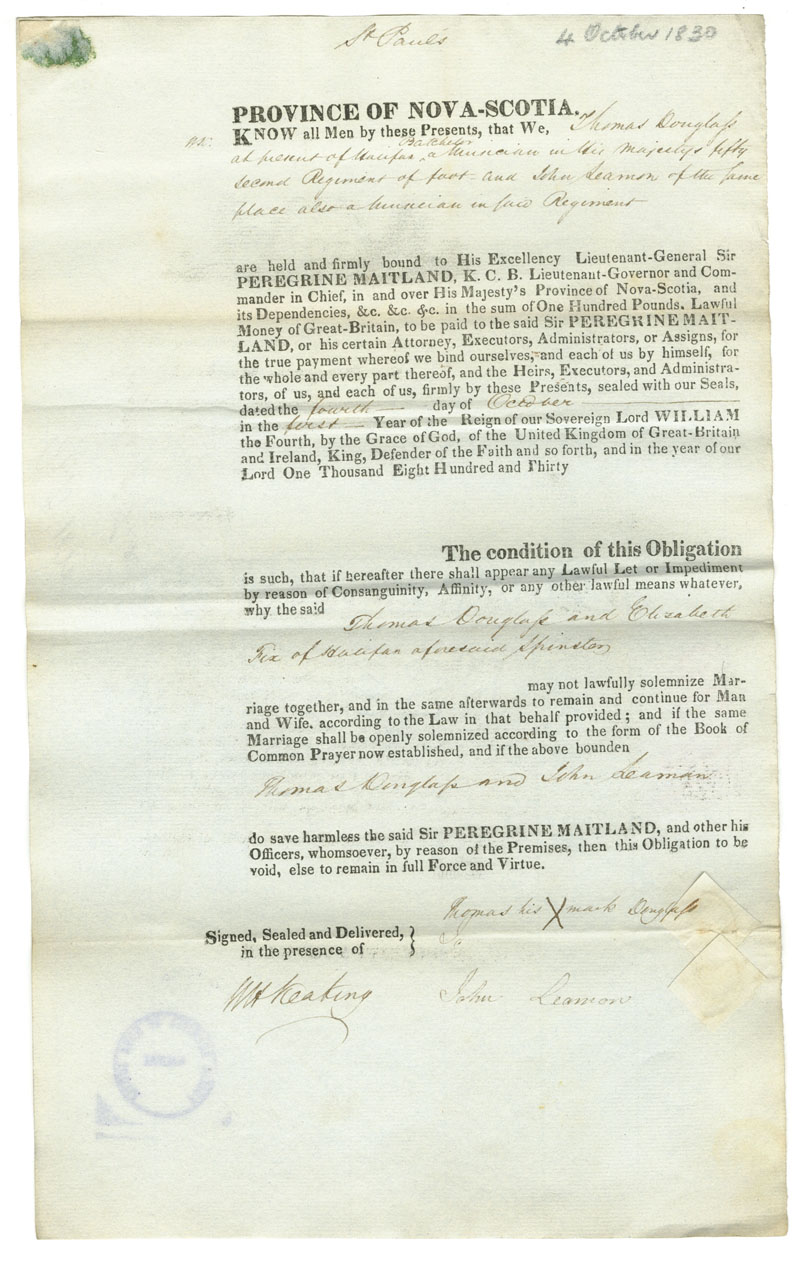 St Pauls
4 October 1830
PROVINCE OF NOVA-SCOTIA.
KNOW all Men by these Presents, that We, Thomas Douglass
Batchelor
at present of Halifax a Musician in His Majestys fifty
second Regiment of foot and John Leamon of the same
place also a Musician in said Regiment
are held and firmly bound to His Excellency Lieutenant-General Sir
PEREGRINE MAITLAND, K. C. B. Lieutenant-Governor and Com-
mander in Chief, in and over His Majesty's Province of Nova-Scotia, and
its Dependencies, &c. &c. &c. in the sum of One Hundred Pounds. Lawful
Money of Great-Britain, to be paid to the said Sir PEREGRINE MAIT-
LAND, or his certain Attorney, Executors, Administrators, or Assigns, for
the true payment whereof we bind ourselves, and each of us by himself, for
the whole and every part thereof, and the Heirs, Executors, and Administra-
tors, of us, and each of us, firmly by these Presents, sealed with our Seals,
dated the fourth day of October
in the first Year of the Reign of our Sovereign Lord WILLIAM
the Fourth, by the Grace of God, of the United Kingdom of Great-Britain
and Ireland, King, Defender of the Faith and so forth, and in the year of our
Lord One Thousand Eight Hundred and Thirty
The condition of this Obligation
is such, that if hereafter there shall appear any Lawful Let or Impediment
by reason of Consanguinity, Affinity, or any other lawful means whatever,
why the said
Thomas Douglass and Elizabeth
Fix of Halifax aforesaid Spinster
may not lawfully solemnize Mar-
riage together, and in the same afterwards to remain and continue for Man
and Wife. according to the Law in that behalf provided; and if the same
Marriage shall be openly solemnized according to the form of the Book of
Common Prayer now established, and if the above bounden
Thomas Douglass and John Leaman
do save harmless the said Sir PEREGRINE MAITLAND, and other his
Officers, whomsoever, by reason of the Premises, then this Obligation to be
void, else to remain in full Force and Virtue.
Thomas his X mark Douglass
Signed, Sealed and Delivered,
in the presence of
WH Keating
John Leamon